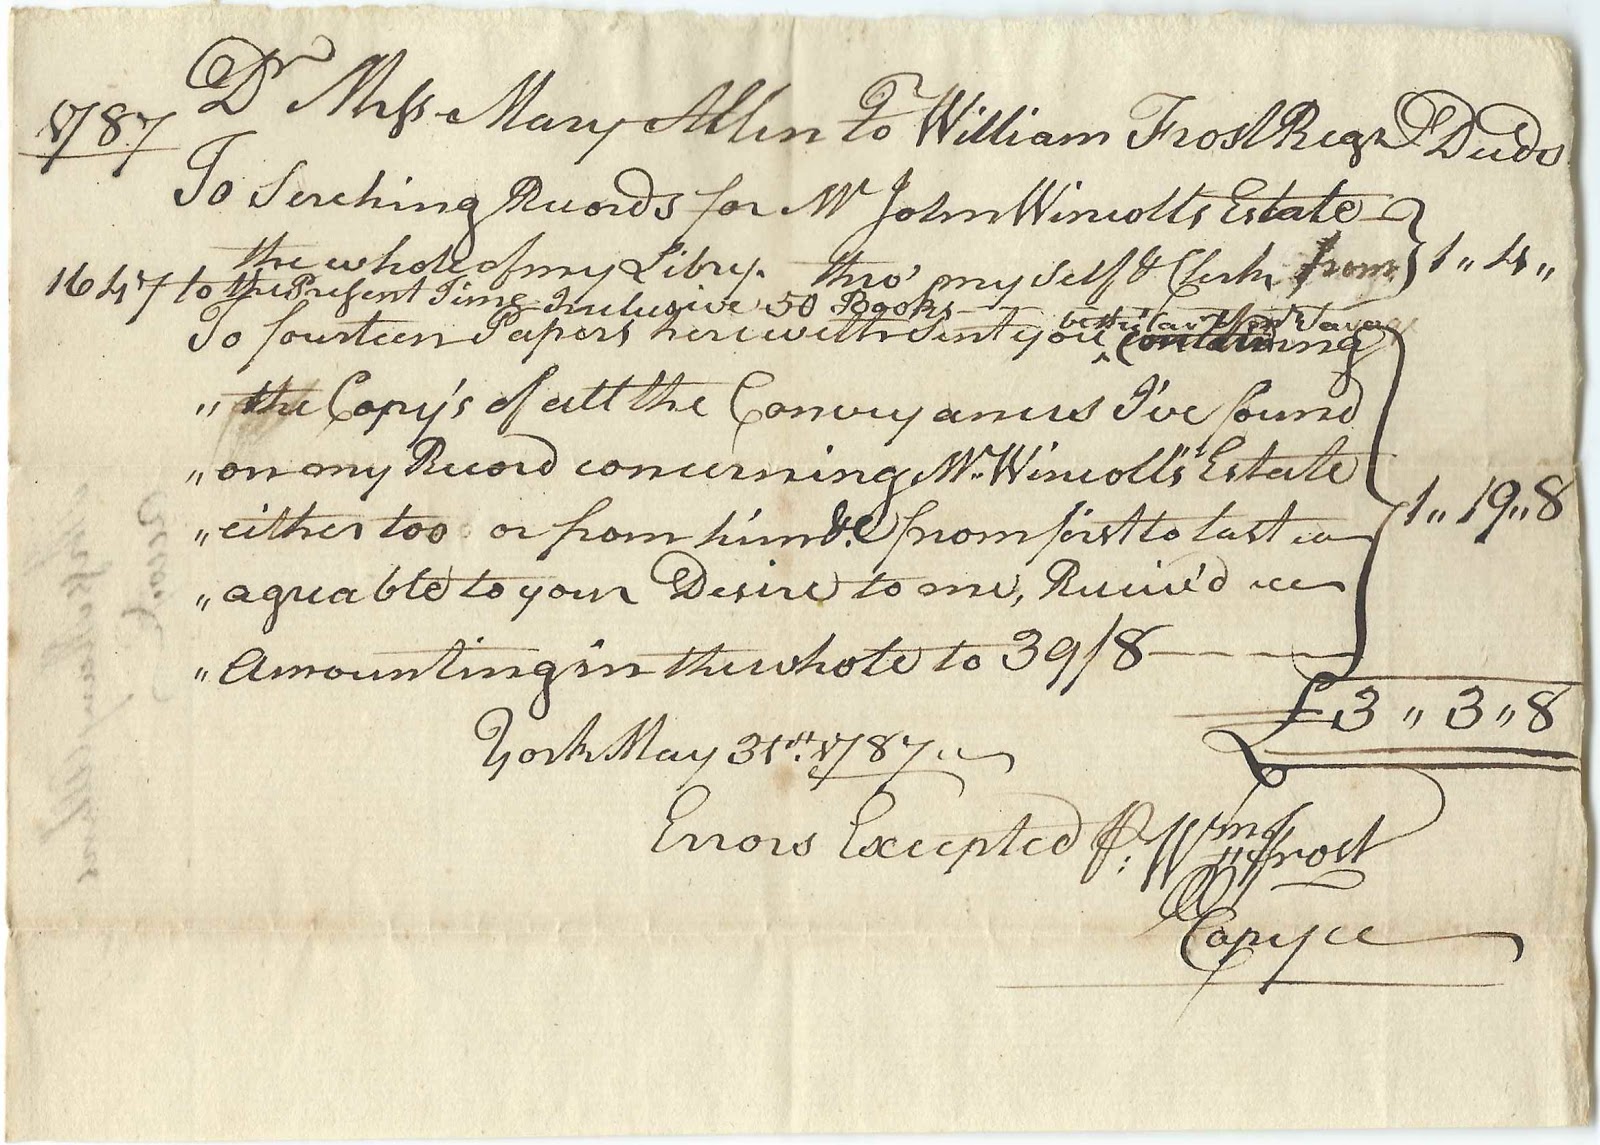 1787 Dr Mrss Mary Allen To William Frost Regr Deeds
To Serching Records for Mr John Wincolls Estate
the whole of my Libry. thro' my self & Clerk from 1 ,, 4 ,,
1647 to the Present Time Inclusive 50 Books
To fourteen Papers herewith Sent you containing
,, the Copy's of all the Conveyances I've found
,, on my Record concerning Mr. Wincoll's Estate
,, either too or from him &c from first to last 1 ,, 19 ,, 8
,, agreable to your Desire to me, Receiv'd
,, Amounting in the whole to 39/8
£3 ,, 3 ,, 8
York May 31st. 1787
Errors Excepted P: Wm Frost
Copy